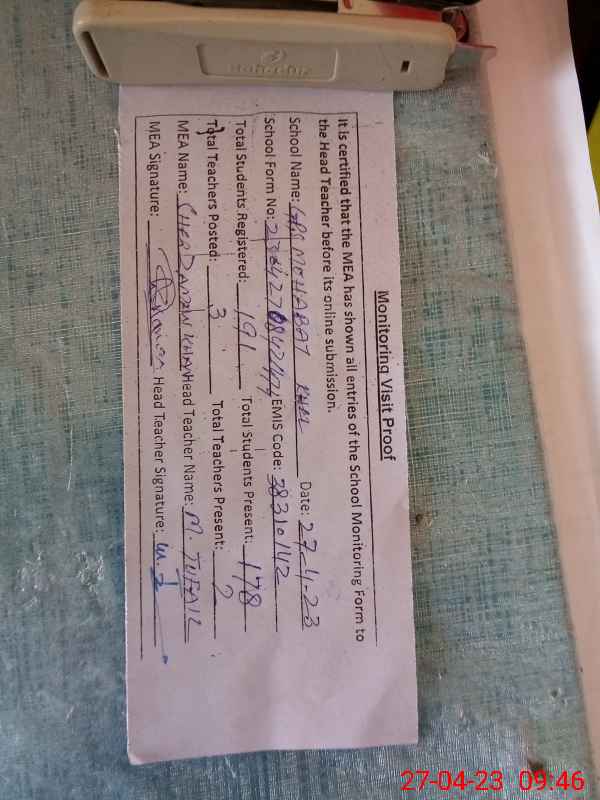 Monitoring Visit Proof
It is certified that the MEA has shown all entries of the School Monitoring Form to
the Head Teacher before its online submission.
School Name: GPS MOHABAT KHEL Date: 27-4-23
School Form No: EMIS Code: 38310142
Total Students Registered: 191 Total Students Present: 178
Total Teachers Posted: 3 Total Teachers Present: 2
MEA Name: KHAN Head Teacher Name: M. TUFAIL
MEA Signature: Head Teacher Signature:
27-04-23 09:46